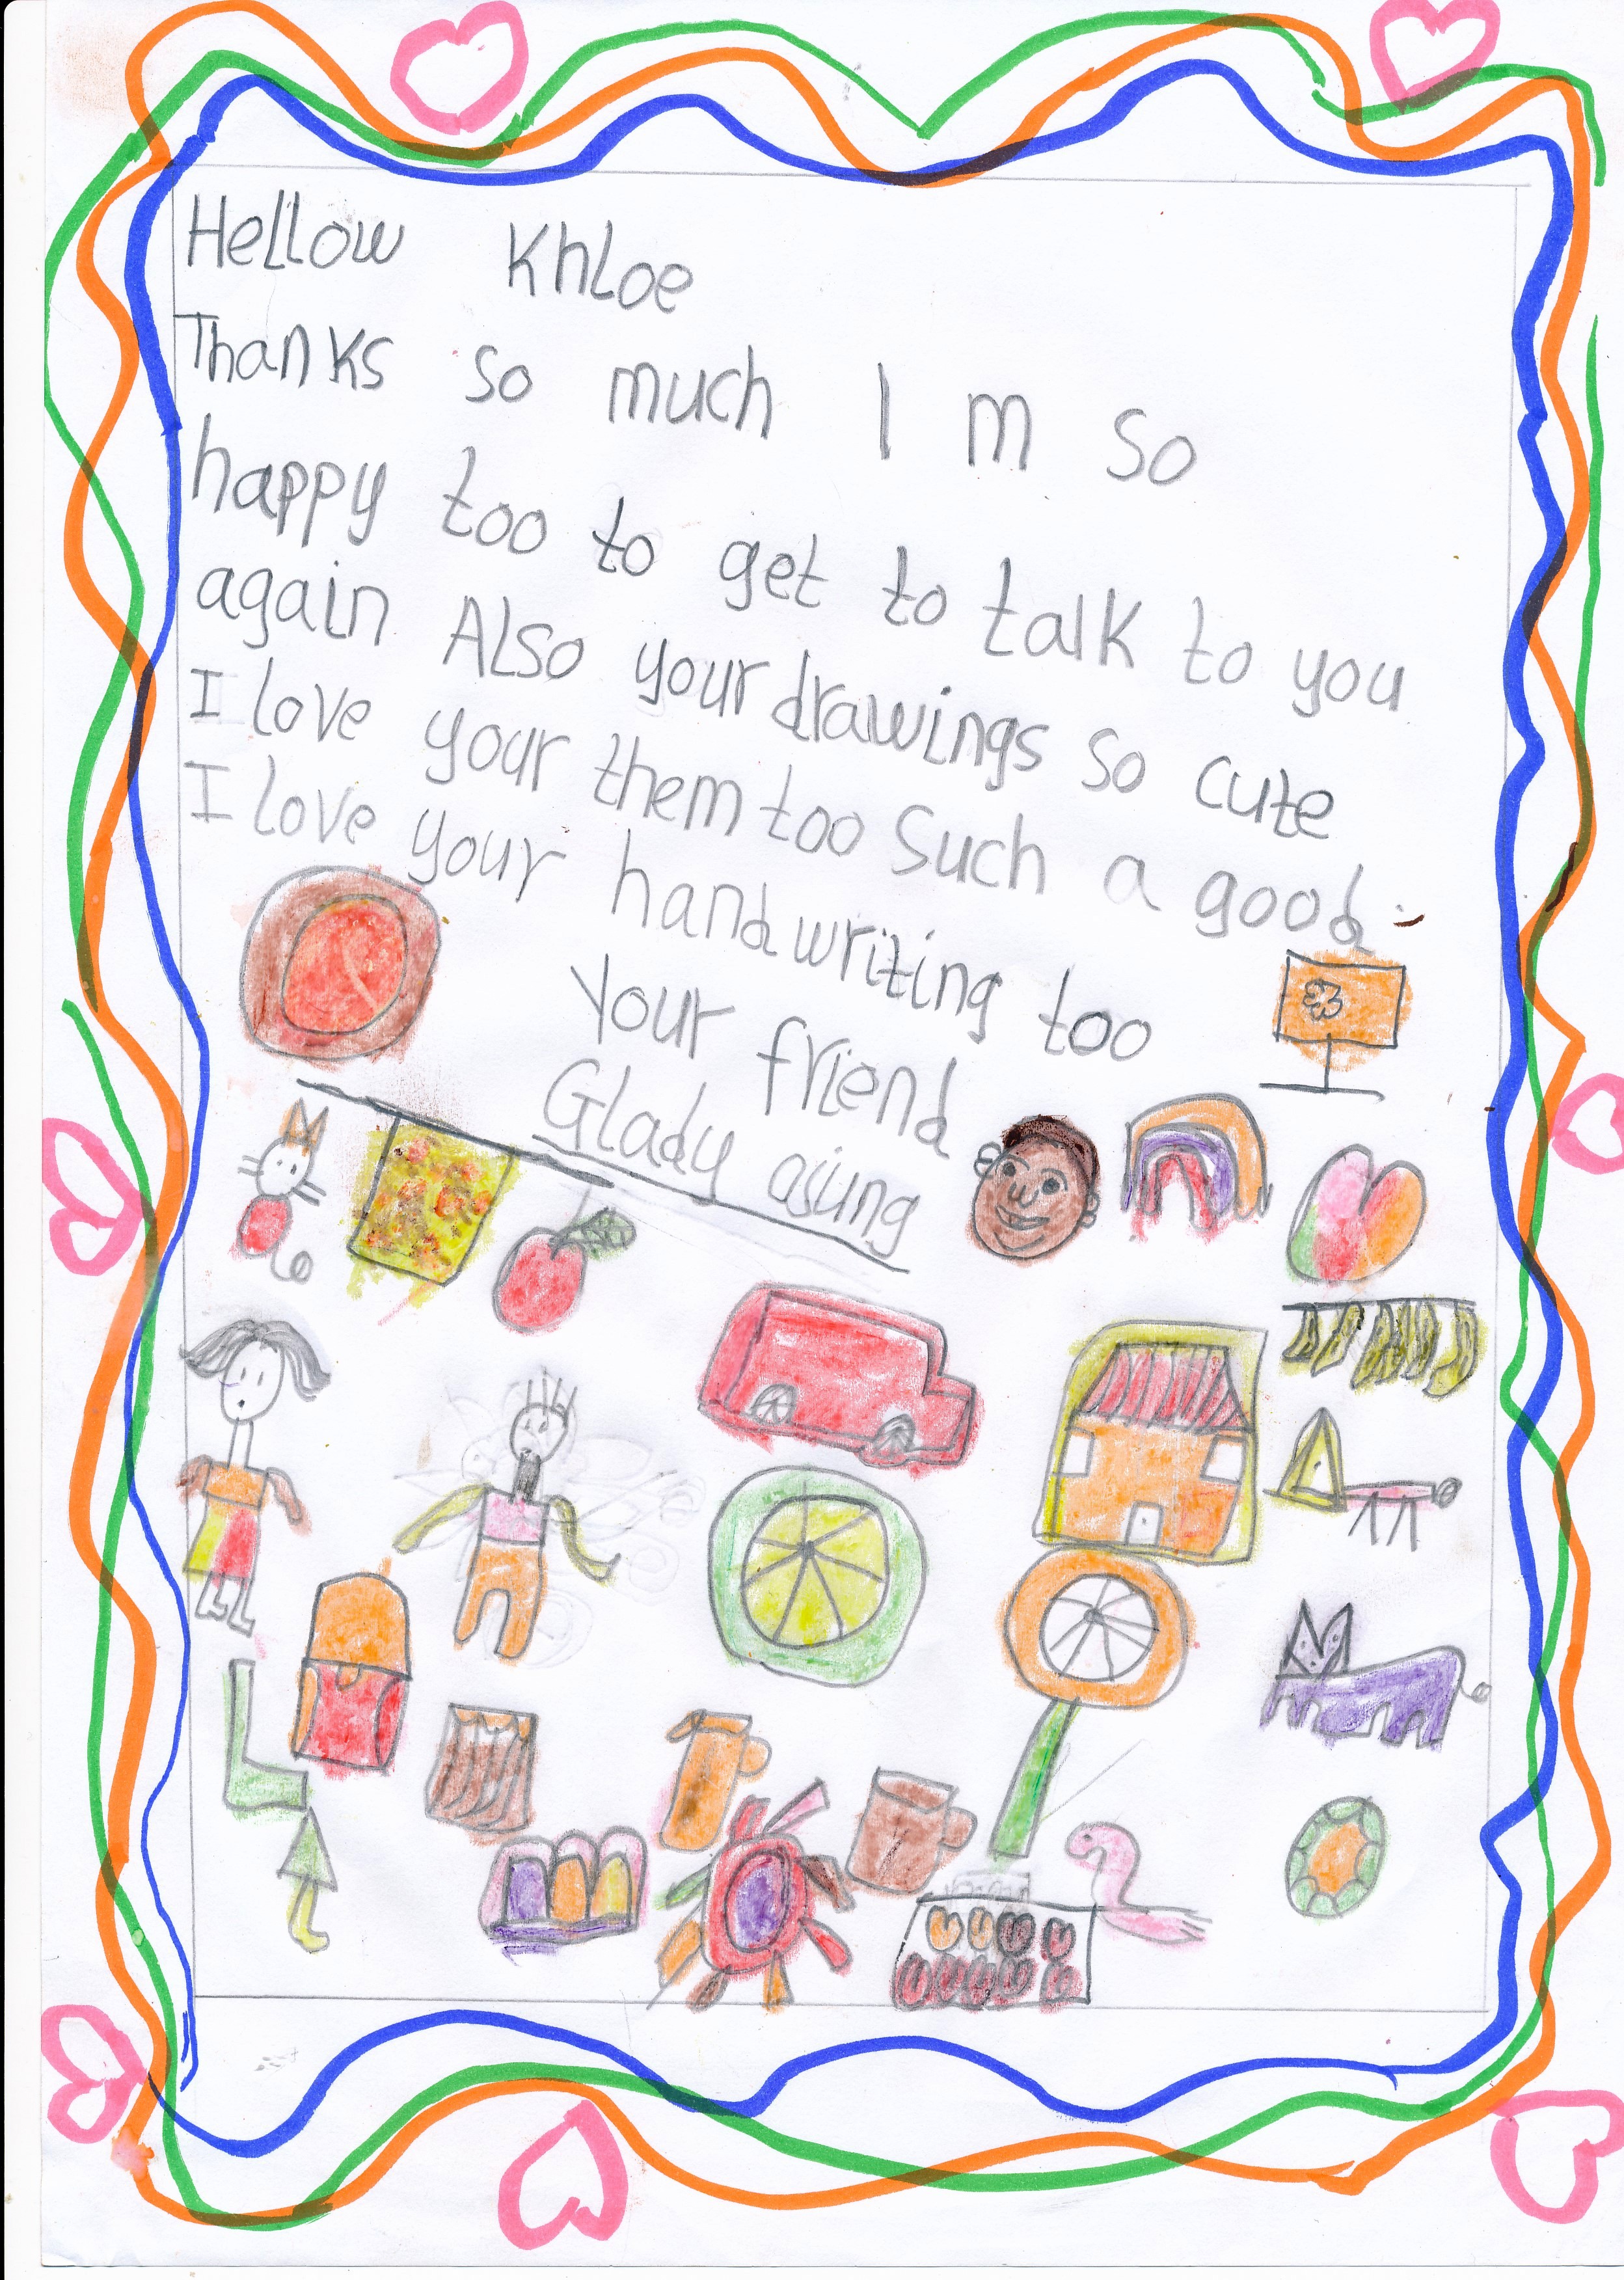 Hellow Khloe
Thanks so much I m so
happy too to get to talk to you
again Also your drawings so cute
I love your them too Such a good
I love your handwriting too
Your friend
Glady